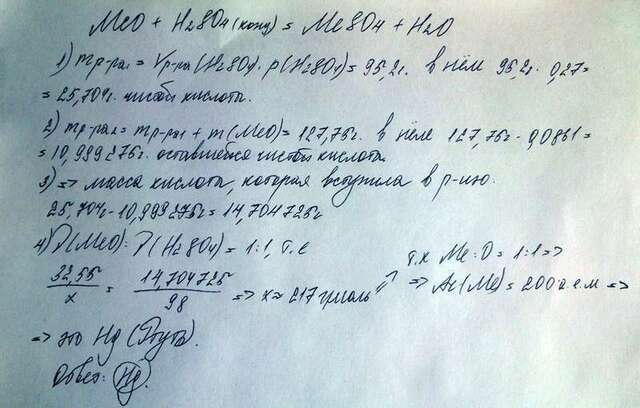 MeO + H2SO4 (конц) = MeSO4 + H2O
1) mр-ра1 = Vр-ра(H2SO4) · ρ(H2SO4) = 95,2г. в нём 95,2г. 0,27 =
= 25,704г. чистой кислоты.
2) mр-ра2 = mр-ра1 + m(MeO) = 127,75г. в нём 127,75г · 0,0861 =
= 10,999275г. оставшейся чистой кислоты
3) => масса кислоты, которая вступила в р-ию:
25,704г - 10,999275г = 14,704725г
4) ν(MeO) : ν(H2SO4) = 1:1, т.е
32,55/x = 14,704725/98 => x ≈ 217 г/моль
т.к Me:O = 1:1 =>
=> Ar(Me) = 200 а.е.м =>
=> это Hg (Ртуть).
Ответ: Hg.